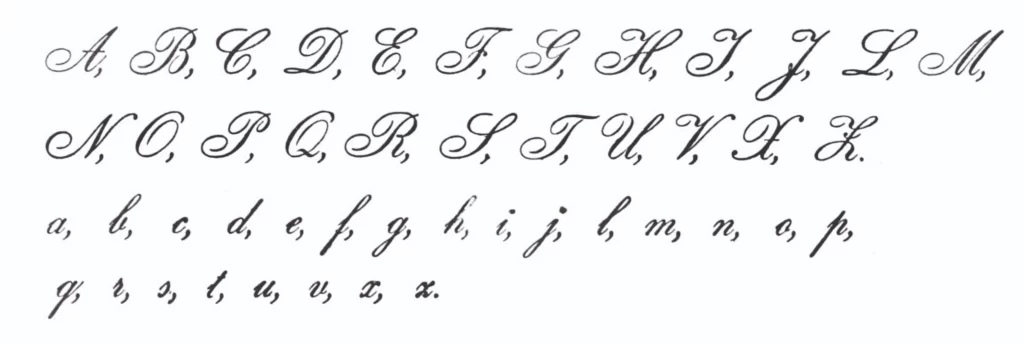 A, B, C, D, E, F, G, H, I, J, L, M,
N, O, P, Q, R, S, T, U, V, X, Z.
a, b, c, d, e, f, g, h, i, j, l, m, n, o, p,
q, r, s, t, u, v, x, z.